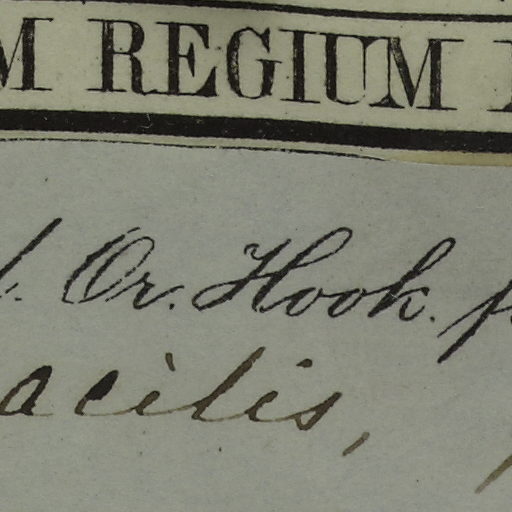 M REGIUM
l. Or. Hook. f
acilis,